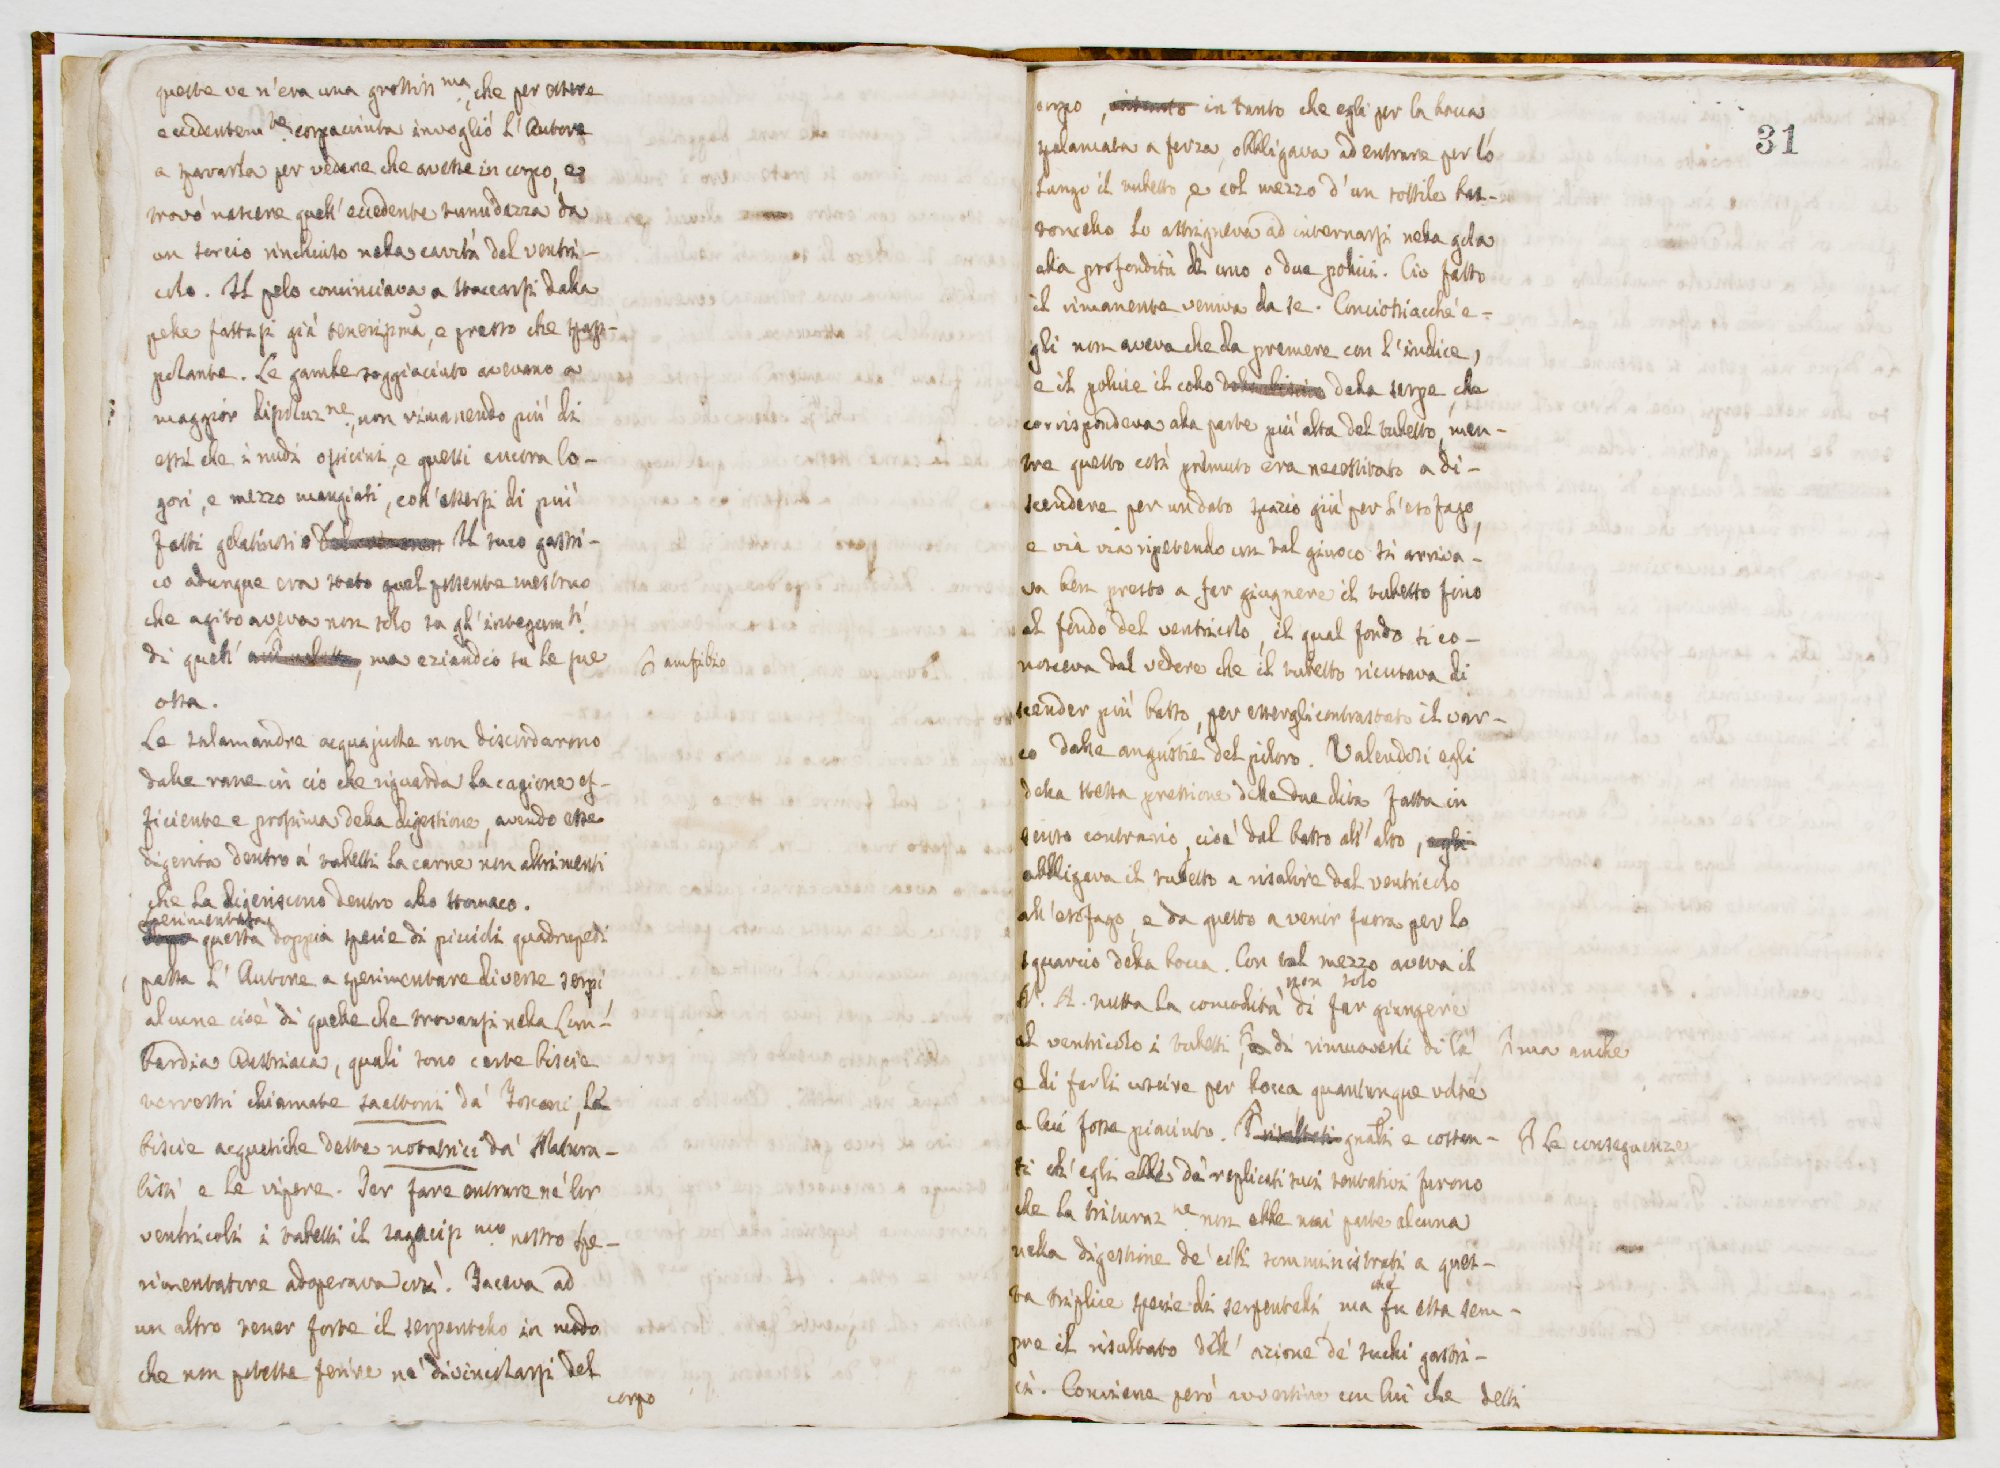 queste ve n'era una grossiss.ma, che per essere
eccedentem.te corpacciuta invogliò l'Autore
a spararla per vedere che avesse in corpo, e
trovò nascere quell'eccedente tumidezza da
un sorcio rinchiuso nella cavità del ventri-
colo. Il pelo cominciava a staccarsi dalla
pelle fattasi già tenerissima, e presso che spap-
polante. Le gambe soggiaciuto avevano a
maggior dissoluz.ne, non rimanendo più di
esse che i nudi ossicini, e questi ancora lo-
gori, e mezzo mangiati, coll'essersi di più
fatti gelatinosi. Il suco gastri-
co adunque era stato quel possente mestruo
che agito aveva non solo su gl'integum.ti
di quell', ma eziandio su le sue
ossa.
amfibio
Le salamandre acquajuole non discordarono
dalle rane in ciò che riguarda la cagione ef-
ficiente e prossima della digestione, avendo esse
digerita dentro a' tubetti la carne non altrimenti
che la digeriscono dentro allo stomaco.
Sperimentata
questa doppia specie di piccioli quadrupedi
passa l'Autore a sperimentare diverse serpi
alcune cioè di quelle che trovansi nella Lom-
bardia Austriaca, quali sono certe biscie
terrestri chiamate saettoni da' Toscani, le
biscie acquatiche dette notatrici da' Natura-
listi e le vipere. Per fare entrare ne' lor
ventricoli i tubetti il sagaciss.mo nostro spe-
rimentatore adoperava così. Faceva ad
un altro tener forte il serpentello in modo
che non potesse ferire nè divincolarsi del
corpo
31
corpo, in tanto che egli per la bocca
spalancata a forza, obbligava ad entrare per lo
lungo il tubetto, e col mezzo d'un sottile bas-
toncello lo astrigneva ad internarsi nella gola
alla profondità di uno o due pollici. Ciò fatto
il rimanente veniva da se. Conciossiacchè e-
gli non aveva che da premere con l'indice,
e il pollice il collo della serpe, che
corrispondeva alla parte più alta del tubetto, men-
tre questo così premuto era necessitato a di-
scendere per un dato spazio giù per l'esofago,
e via via ripetendo un tal giuoco si arriva-
va ben presto a far giugnere il tubetto fino
al fondo del ventricolo, il qual fondo si co-
nosceva dal vedere che il tubetto ricusava di
scender più basso, per essergli contrastato il var-
co dalle angustie del piloro. Valendosi egli
della stessa pressione delle due dita fatta in
senso contrario, cioè dal basso all'alto, egli
obbligava il tubetto a risalire dal ventricolo
all'esofago, e da questo a venir fuora per lo
squarcio della bocca. Con tal mezzo aveva il
non solo
N. A. tutta la comodità di far giungere
al ventricolo i tubetti, di rimuoverli di là
ma anche
e di farli uscire per bocca quantunque volte
a lui fosse piaciuto. gnali e costan-
Le conseguenze
ti ch'egli ebbe da' replicati suoi tentativi furono
che la trituraz.ne non ebbe mai parte alcuna
nella digestione de' cibi somministrati a ques-
ta triplice specie di serpentelli, ma che fu essa sem-
pre il risultato dell'azione de' suchi gastri-
ci. Conviene però avvertire con lui che detti